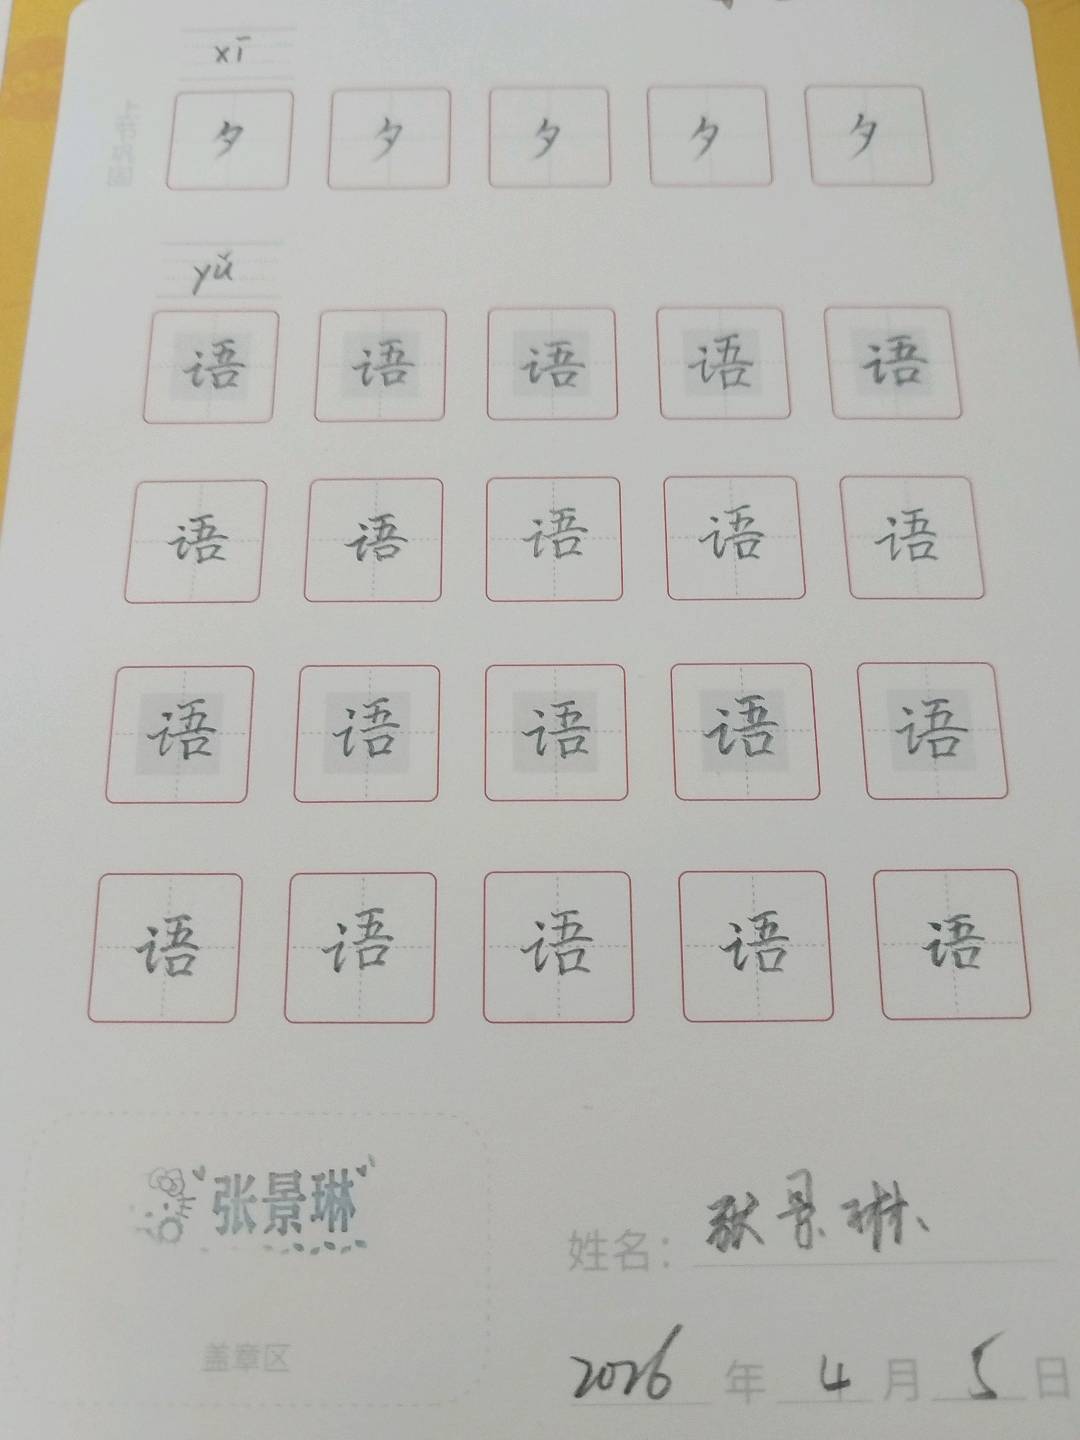 xī
夕 夕 夕 夕 夕
yǔ
语 语 语 语 语
语 语 语 语 语
语 语 语 语 语
语 语 语 语 语
张景琳
盖章区
姓名：张景琳
2026年4月5日